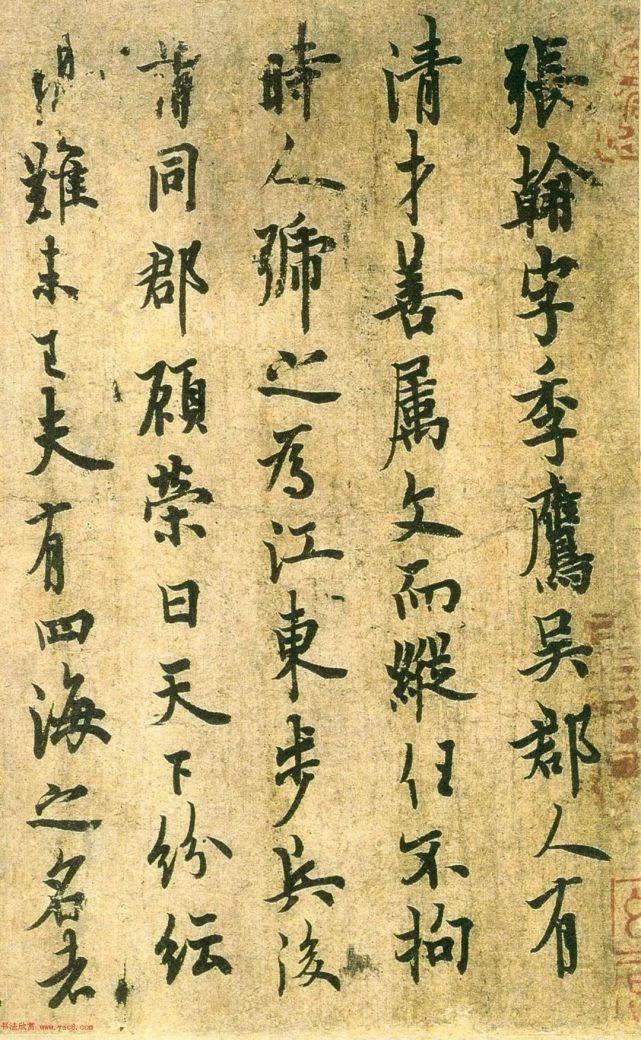 張翰字季鷹吳郡人有
清才善属文而縱任不拘
時人號之為江東步兵後
謂同郡顧榮曰天下紛紜
禍難未已夫有四海之名者
书法欣赏 www.yac8.com